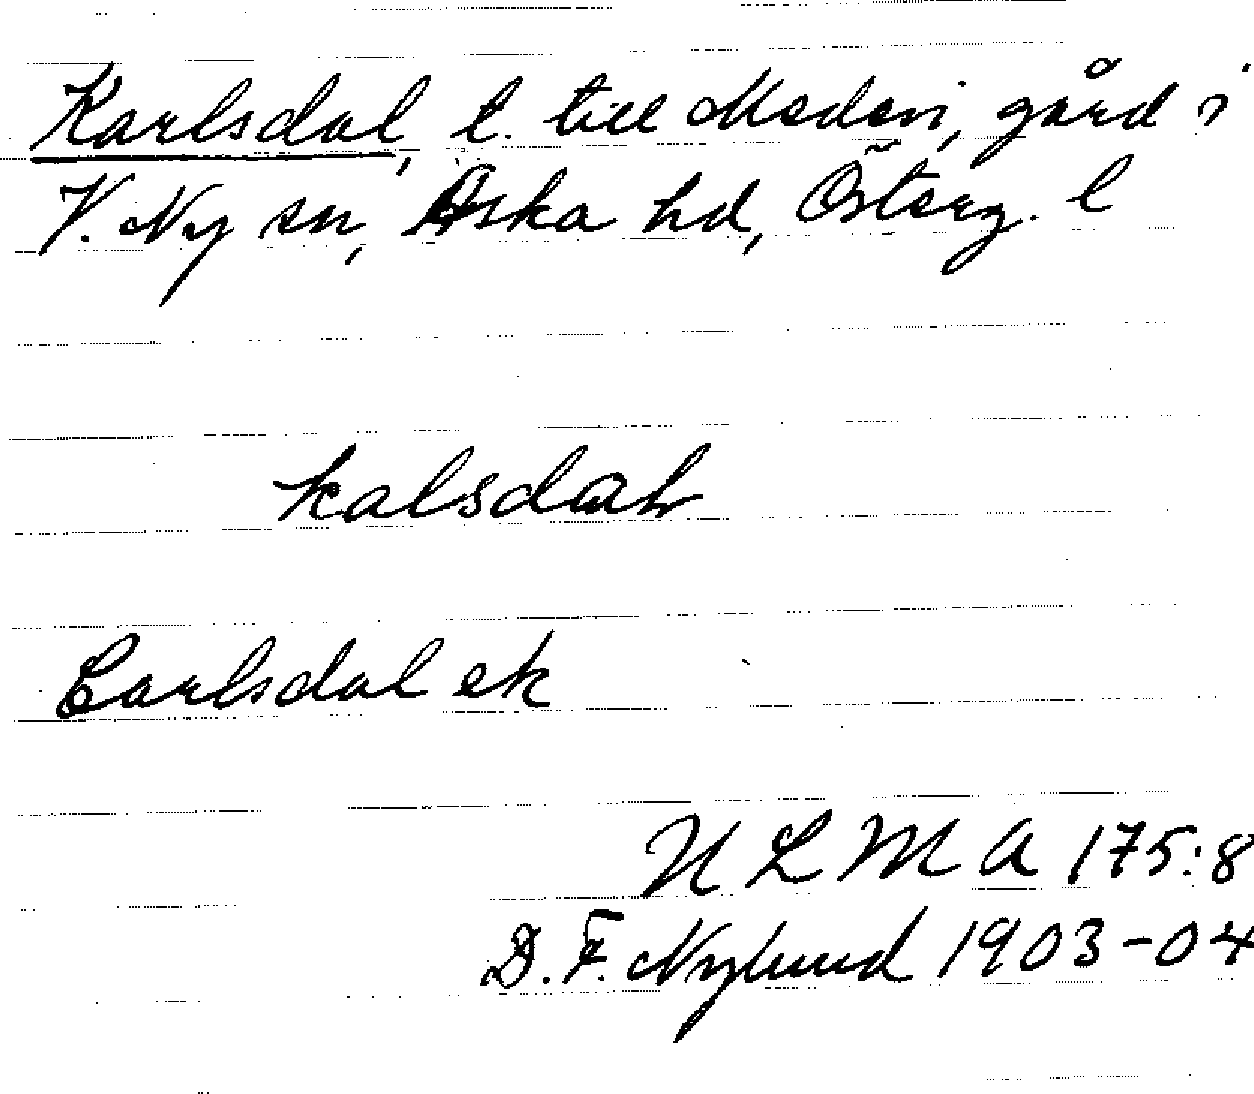 Karlsdal, l. till Medevi, gård i
V. Ny sn, Aska hd, Österg. l
kalsdaƚ
Carlsdal ek
ULMA 175:8
D. F. Nylund 1903-04